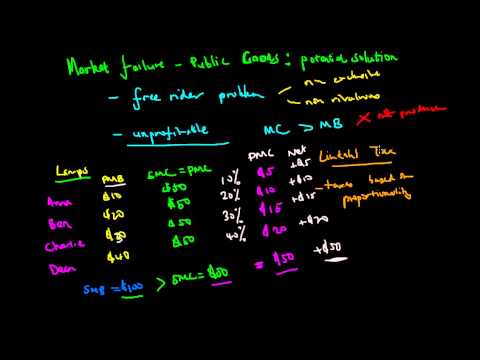 Market failure - Public Goods: potential solution
- free rider problem
non exclusive
non rivalrous
- unprofitable
MC > MB
X not produce
Lamps PMB SMC = PMC PMC Net Lindahl Tax
Anna $10 $50 10% $5 +$5
Ben $20 $50 20% $10 +$10
Charlie $30 $50 30% $15 +$15
Dean $40 $50 40% $20 +$20
- taxes based on proportionality
SMB = $100 > SMC = $50 = $50 +$50